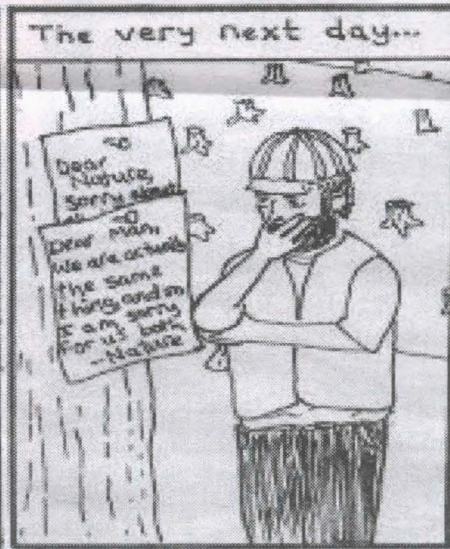 The very next day...
Dear
Nature,
sorry about
Dear Man,
We are actually
the same
thing and
I am sorry
for us both
-Nature